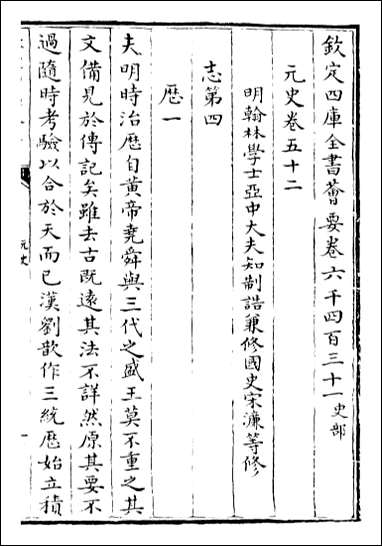 欽定四庫全書薈要卷六千四百三十一史部
元史卷五十二
明翰林學士亞中大夫知制誥兼修國史宋濂等修
志第四
歴一
夫明時治歴自黃帝堯舜與三代之盛王莫不重之其
文備見於傳記矣雖去古既遠其法不詳然原其要不
過隨時考驗以合於天而已漢劉歆作三統歴始立積
元史
一